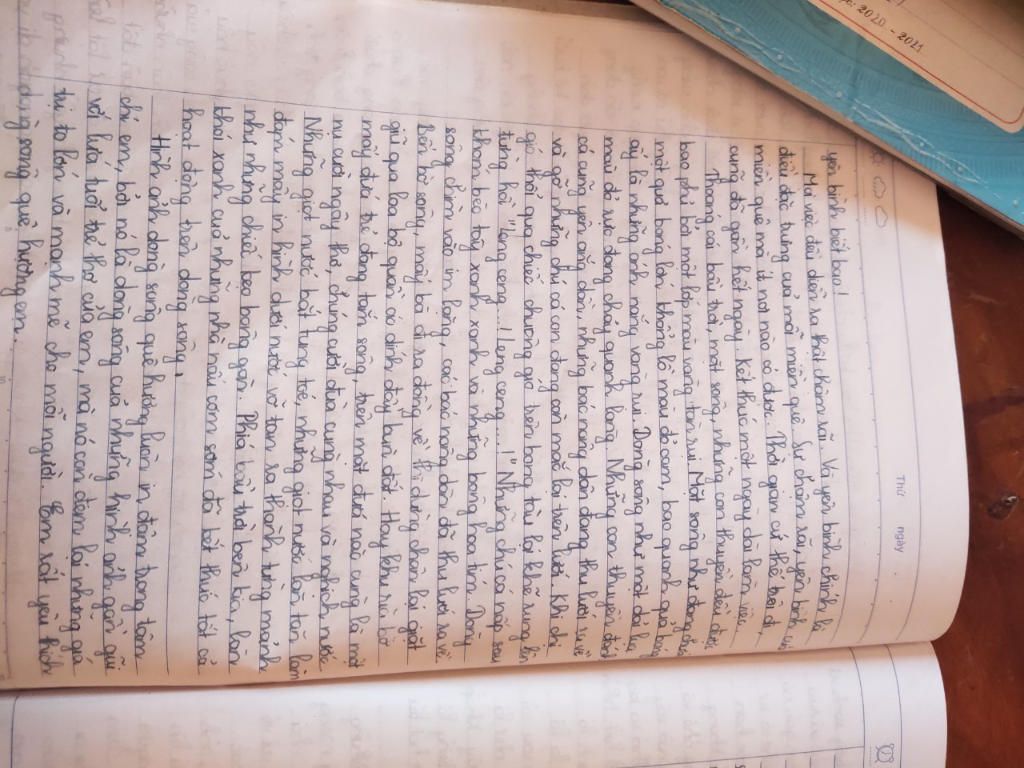 2020 - 2021
Thứ ngày
yên bình biết bao!
Mọi việc đều diễn ra thật chậm rãi. Và yên bình chính là
điều đặc trưng của mỗi miền quê. Sự chậm rãi, yên bình
miền quê mà ít nơi nào có được. Thời gian cứ thế trôi đi,
cũng đã gần hết ngày. Kết thúc một ngày dài làm việc.
Thoáng cái bầu trời, mặt sông, những con thuyền đều được
bao phủ bởi một lớp màu vàng tàn rụi. Mặt sông như đang
một quả bóng lớn, khổng lồ màu đỏ cam, bao quanh quả bóng
ấy là những ánh nắng vàng rụi. Dòng sông như một dải lụa
màu đỏ rực đang chảy quanh làng. Những con thuyền đánh
cá cũng yên ắng dần, những bác nông dân đang thu lưới về
và gỡ những chú cá con đang còn mắc lại trên lưới. Khi chị
gió thổi qua, chiếc chuông gió trên bong tàu lại khẽ rung lên
từng hồi "leng ceng...! leng ceng...!" Những chú cá nấp sau
thảm bèo tây xanh xanh và những bông hoa tím. Dòng
sông chìm vào im lặng, các bác nông dân đã thu lưới ra về.
Bên bờ sông, mấy bà đi ra đồng về thì dừng chân lại giặt
giũ qua loa bộ quần áo dính đầy bùn đất. Thay khu rìa bờ
mấy đứa trẻ đang tắm sông, trên mặt đứa nào cũng là một
nụ cười ngây thơ, chúng cười đùa cùng nhau và nghịch nước.
Những giọt nước bắt tung tóe, những giọt nước làm tan làn
đám mây in hình dưới nước vỡ tan ra thành từng mảnh
như những chiếc kẹo bông gòn. Phía cuối trời bom kia, làn
khói xanh của những nhà nấu cơm sớm đã kết thúc tất cả
hoạt động trên dòng sông.
Hình ảnh dòng sông quê hương luôn in đậm trong tâm
chí em, bởi nó là dòng sông của những hình ảnh gần gũi
với lứa tuổi trẻ thơ của em, mà nó còn đem lại những giá
trị to lớn và mạnh mẽ cho mỗi người. Em rất yêu thích
dòng sông quê hương em.